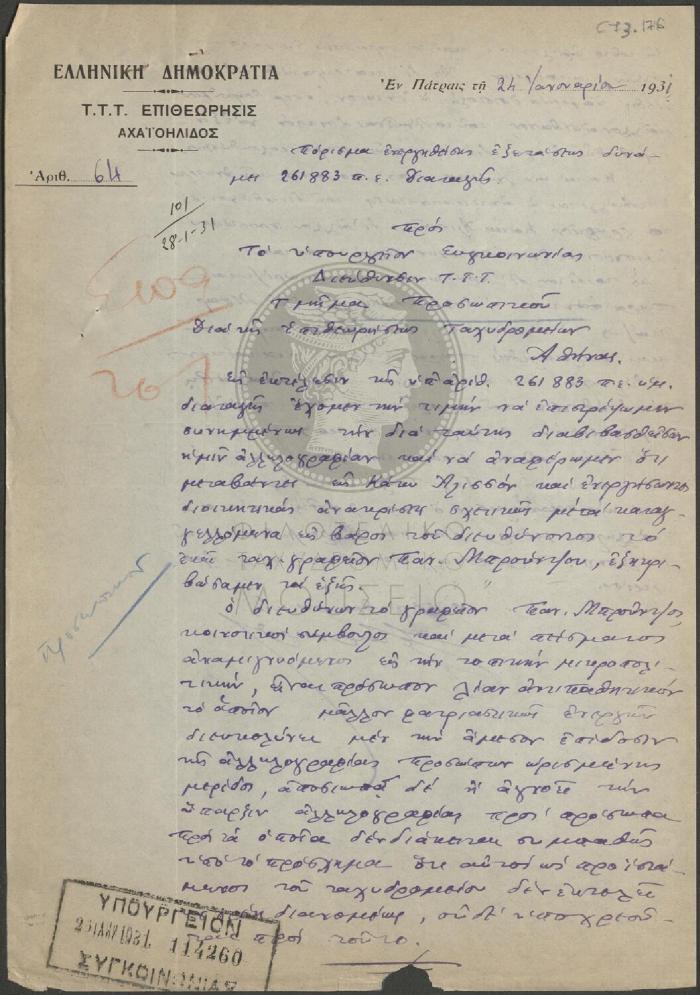 C13.176
ΕΛΛΗΝΙΚΗ ΔΗΜΟΚΡΑΤΙΑ
Τ.Τ.Τ. ΕΠΙΘΕΩΡΗΣΙΣ
ΑΧΑΪΟΗΛΙΔΟΣ
Ἀριθ. 64
Ἐν Πάτραις τῇ 24 Ἰανουαρίου 1931
Πόρισμα ἐνεργηθείσης ἐξετάσεως δυνά-
μει 261883 π.ε. διαταγῆς
101
28-1-31
Πρός
Τό Ὑπουργεῖον Συγκοινωνίας
Διεύθυνσιν Τ.Τ.Τ.
Τμῆμα Προσωπικοῦ
Διά τῆς Ἐπιθεωρήσεως Ταχυδρομείων
Ἀθήνας.
Εἰς ἐκτέλεσιν τῆς ὑπ' ἀριθ. 261883 π.ε. ὑμ.
διαταγῆς ἔχομεν τήν τιμήν νά ἐπιστρέψωμεν
συνημμένως τήν διά ταύτης διαβιβασθεῖσαν
ἡμῖν ἀλληλογραφίαν καί νά ἀναφέρωμεν ὅτι
μεταβάντες εἰς Κάτω Ἀλισσόν καί ἐνεργήσαντες
διοικητικάς ἀνακρίσεις σχετικῶς μέ τά καταγ-
γελλόμενα εἰς βάρος τοῦ διευθύνοντος τό
ἐκεῖ ταχ. γραφεῖον Παν. Μπρούντζου, ἐξηκρι-
βώσαμεν τά ἑξῆς.
Ὁ διευθύνων τό γραφεῖον Παν. Μπρούντζος,
κοινοτικός σύμβουλος καί μετά πείσματος
ἀναμιγνυόμενος εἰς τήν τοπικήν μικροπολι-
τικήν, εἶναι πρόσωπον λίαν ἀντιπαθητικόν
τό ὁποῖον μᾶλλον φατριαστικῶς ἐνεργῶν
διευκολύνει μέν τήν ἄμεσον ἐπίδοσιν
τῆς ἀλληλογραφίας προσώπων ὡρισμένης
μερίδος, ἀποσιωπᾷ δέ ἤ ἀγνοεῖ τήν
ὕπαρξιν ἀλληλογραφίας πρός πρόσωπα
πρός τά ὁποῖα δέν διάκειται συμπαθῶς
ὑπό τό πρόσχημα ὅτι αὐτός ὡς προϊστά-
μενος τοῦ ταχυδρομείου δέν ἐκτελεῖ
διανομέως, οὐδέ ὑποχρεοῦ-
πρός τοῦτο.
Προσωπικοῦ
ΦΙΛΟΤΕΛΙΚΟ
ΜΟΥΣΕΙΟ
ΥΠΟΥΡΓΕΙΟΝ
28 ΙΑΝ 1931 114260
ΣΥΓΚΟΙΝΩΝΙΑΣ